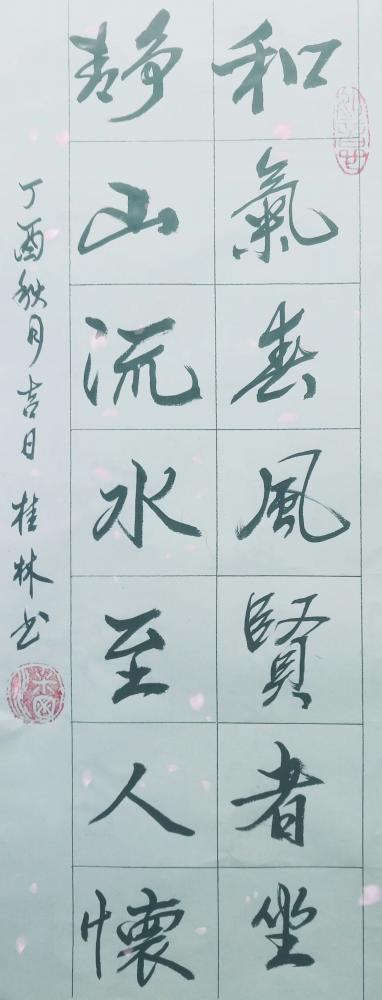 和氣春風賢者坐
静山流水至人懷
丁酉秋月吉日桂林书